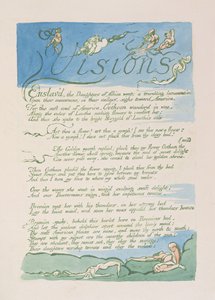 Visions
Enslav'd, the Daughters of Albion weep: a trembling lamentation
Upon their mountains; in their valleys, sighs toward America.
For the soft soul of America, Oothoon wanderd in woe,
Along the vales of Leutha seeking flowers to comfort her;
And thus she spoke to the bright Marygold of Leutha's vale
Art thou a flower! art thou a nymph! I see thee now a flower;
Now a nymph! I dare not pluck thee from thy dewy bed!
The Golden nymph replied; pluck thou my flower Oothoon the mild
Another flower shall spring, because the soul of sweet delight
Can never pass away. she ceas'd & closd her golden shrine.
Then Oothoon pluck'd the flower saying, I pluck thee from thy bed
Sweet flower. and put thee here to glow between my breasts
And thus I turn my face to where my whole soul seeks.
Over the waves she went in wing'd exulting swift delight;
And over Theotormons reign, took her impetuous course.
Bromion rent her with his thunders. on his stormy bed
Lay the faint maid, and soon her woes appalld his thunders hoarse
Bromion spoke. behold this harlot here on Bromions bed,
And let the jealous dolphins sport around the lovely maid;
Thy soft American plains are mine, and mine thy north & south:
Stampt with my signet are the swarthy children of the sun:
They are obedient, they resist not, they obey the scourge:
Their daughters worship terrors and obey the violent: